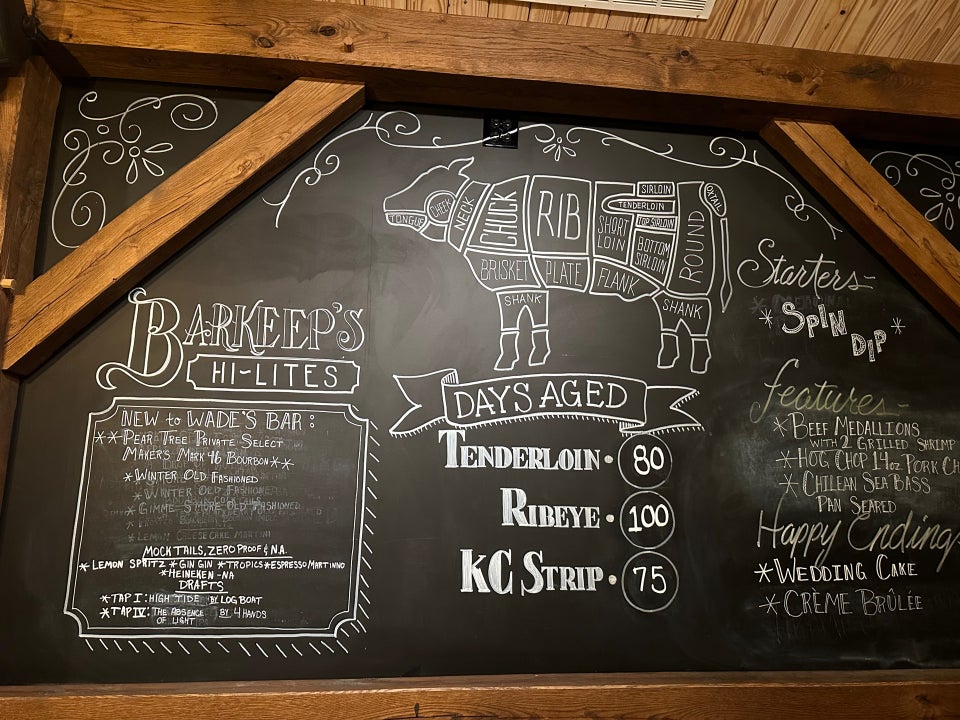 TONGUE
CHEEK
NECK
CHUCK
RIB
SHORT
LOIN
SIRLOIN
TENDERLOIN
TOP SIRLOIN
BOTTOM
SIRLOIN
ROUND
OXTAIL
BRISKET
PLATE
FLANK
SHANK
SHANK
BARKEEP'S
HI-LITES
NEW to WADE'S BAR:
**PEAR TREE PRIVATE SELECT
MAKER'S MARK 46 BOURBON**
*WINTER OLD FASHIONED
*WINTER OLD FASHIONED
*GIMME S'MORE OLD FASHIONED
*LEMON CHEESECAKE MARTINI
MOCKTAILS, ZERO PROOF & N.A.
*LEMON SPRITZ *GIN GIN *TROPICS *ESPRESSO MARTINNO
*HEINEKEN-NA
DRAFTS
*TAP I: HIGH TIDE BY LOG BOAT
*TAP IV: THE ABSENCE OF LIGHT BY 4 HANDS
DAYS AGED
TENDERLOIN • 80
RIBEYE • 100
KC STRIP • 75
Starters-
*SPIN DIP*
Features-
*BEEF MEDALLIONS
WITH 2 GRILLED SHRIMP
*HOG CHOP 14oz PORK CH
*CHILEAN SEA BASS
PAN SEARED
Happy Endings
*WEDDING CAKE
*CRÈME BRÛLÉE